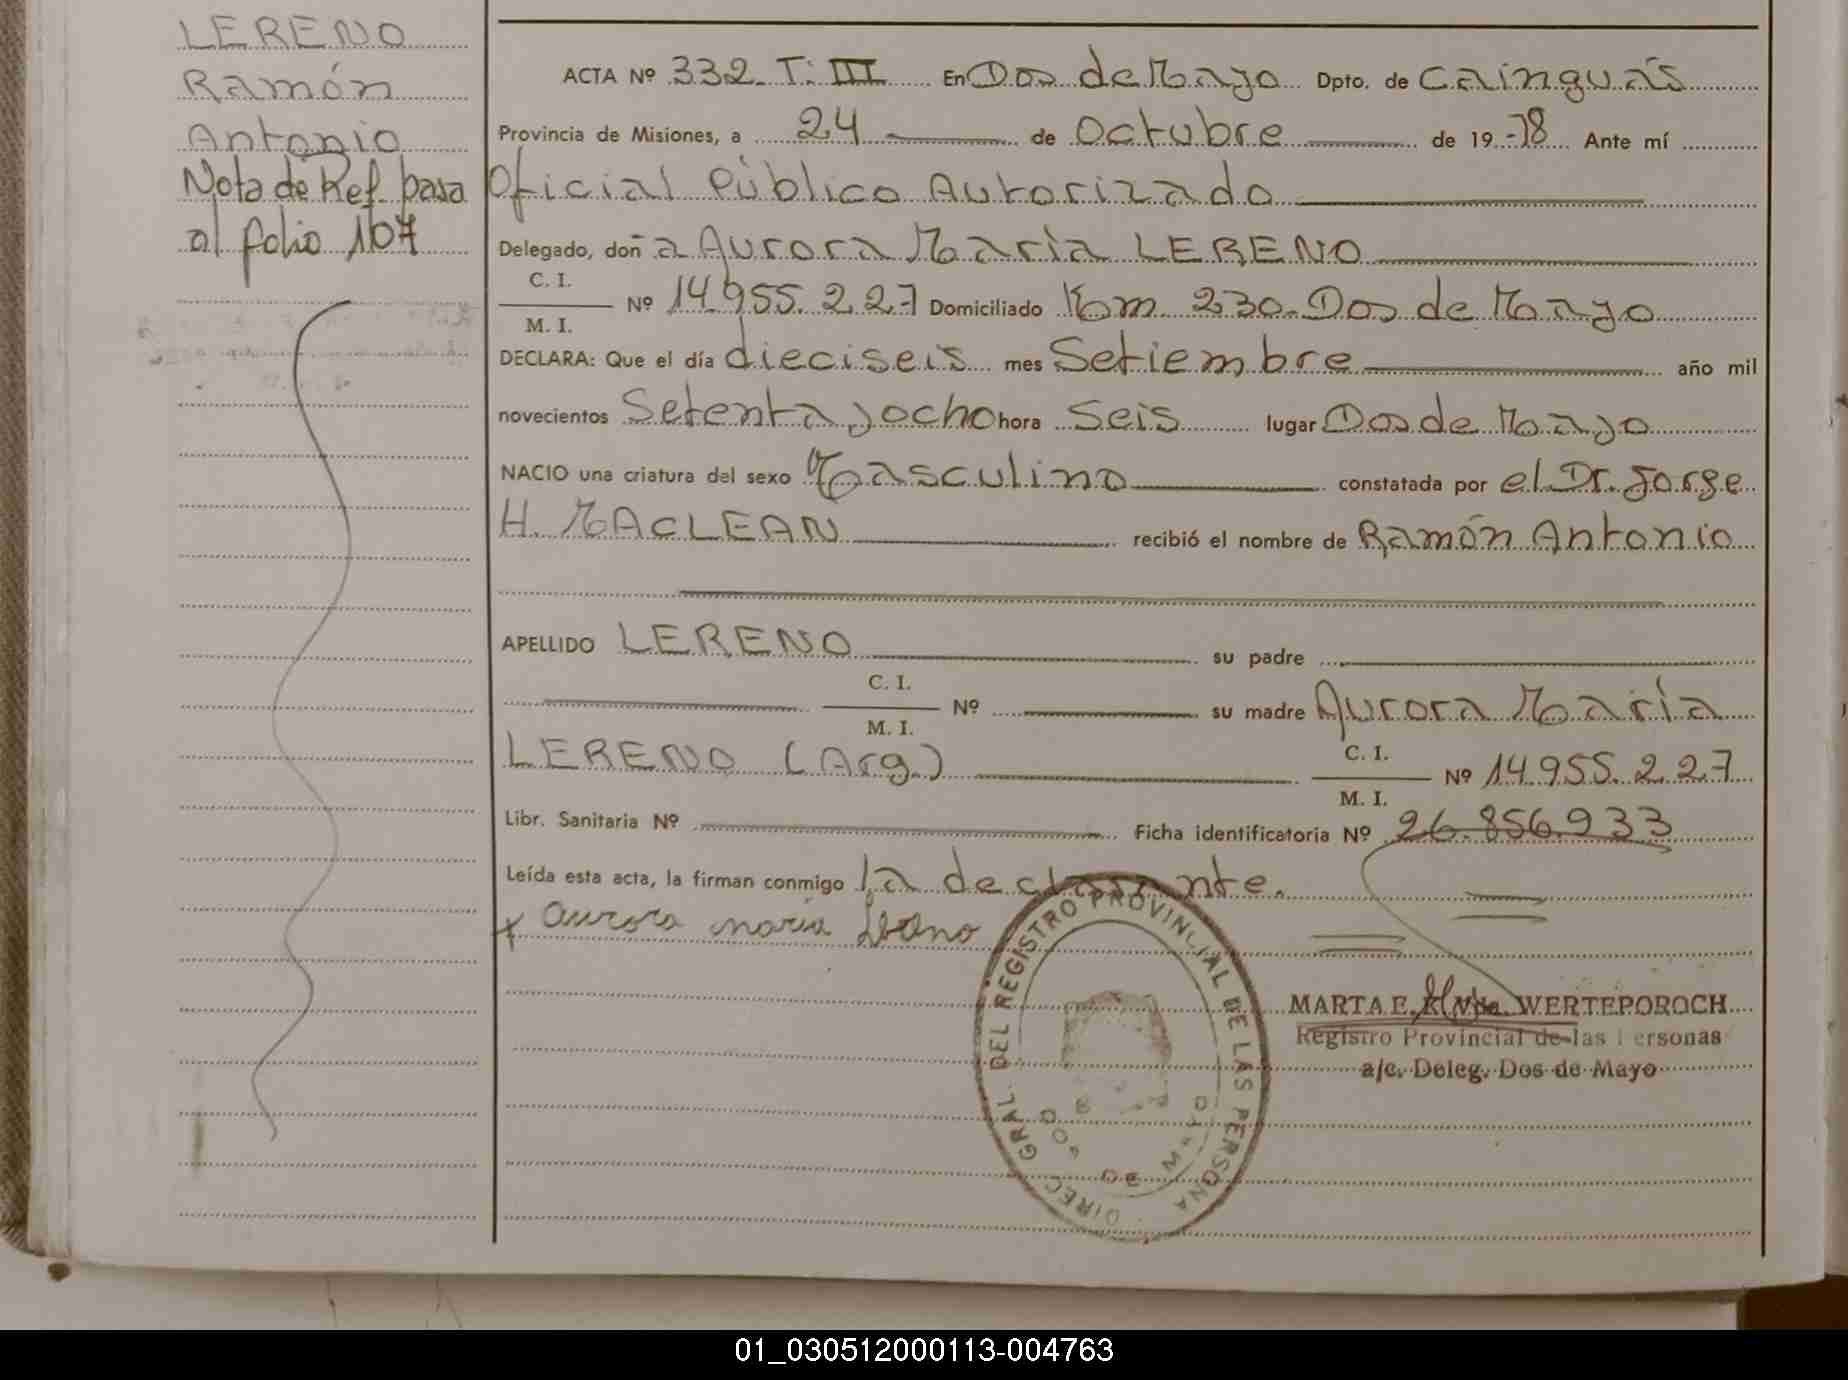 LERENO
Ramón
Antonio
Nota de Ref. pasa
al folio 107
ACTA Nº 332 T: III En Dos de Mayo Dpto. de Cainguás
Provincia de Misiones, a 24 de Octubre de 19-78 Ante mí
Oficial Público Autorizado
Delegado, doñ a Aurora María LERENO
C. I.
M. I.
Nº 14.955.227 Domiciliado Km 230-Dos de Mayo
DECLARA: Que el día dieciseis mes Setiembre año mil
novecientos Setenta y ocho hora Seis lugar Dos de Mayo
NACIO una criatura del sexo Masculino constatada por el Dr. Jorge
H. MACLEAN recibió el nombre de Ramón Antonio
APELLIDO LERENO su padre
C. I.
M. I.
Nº su madre Aurora María
LERENO (Arg.)
C. I.
M. I.
Nº 14.955.227
Libr. Sanitaria Nº Ficha identificatoria Nº 26.856.933
Leída esta acta, la firman conmigo la declarante.
x Aurora maria
DIREC. GRAL. DEL REGISTRO PROVINCIAL DE LAS PERSONA
DOS DE MAYO
MARTA E. WERTEPOROCH
Registro Provincial de las Personas
a/c. Deleg. Dos de Mayo
01_030512000113-004763